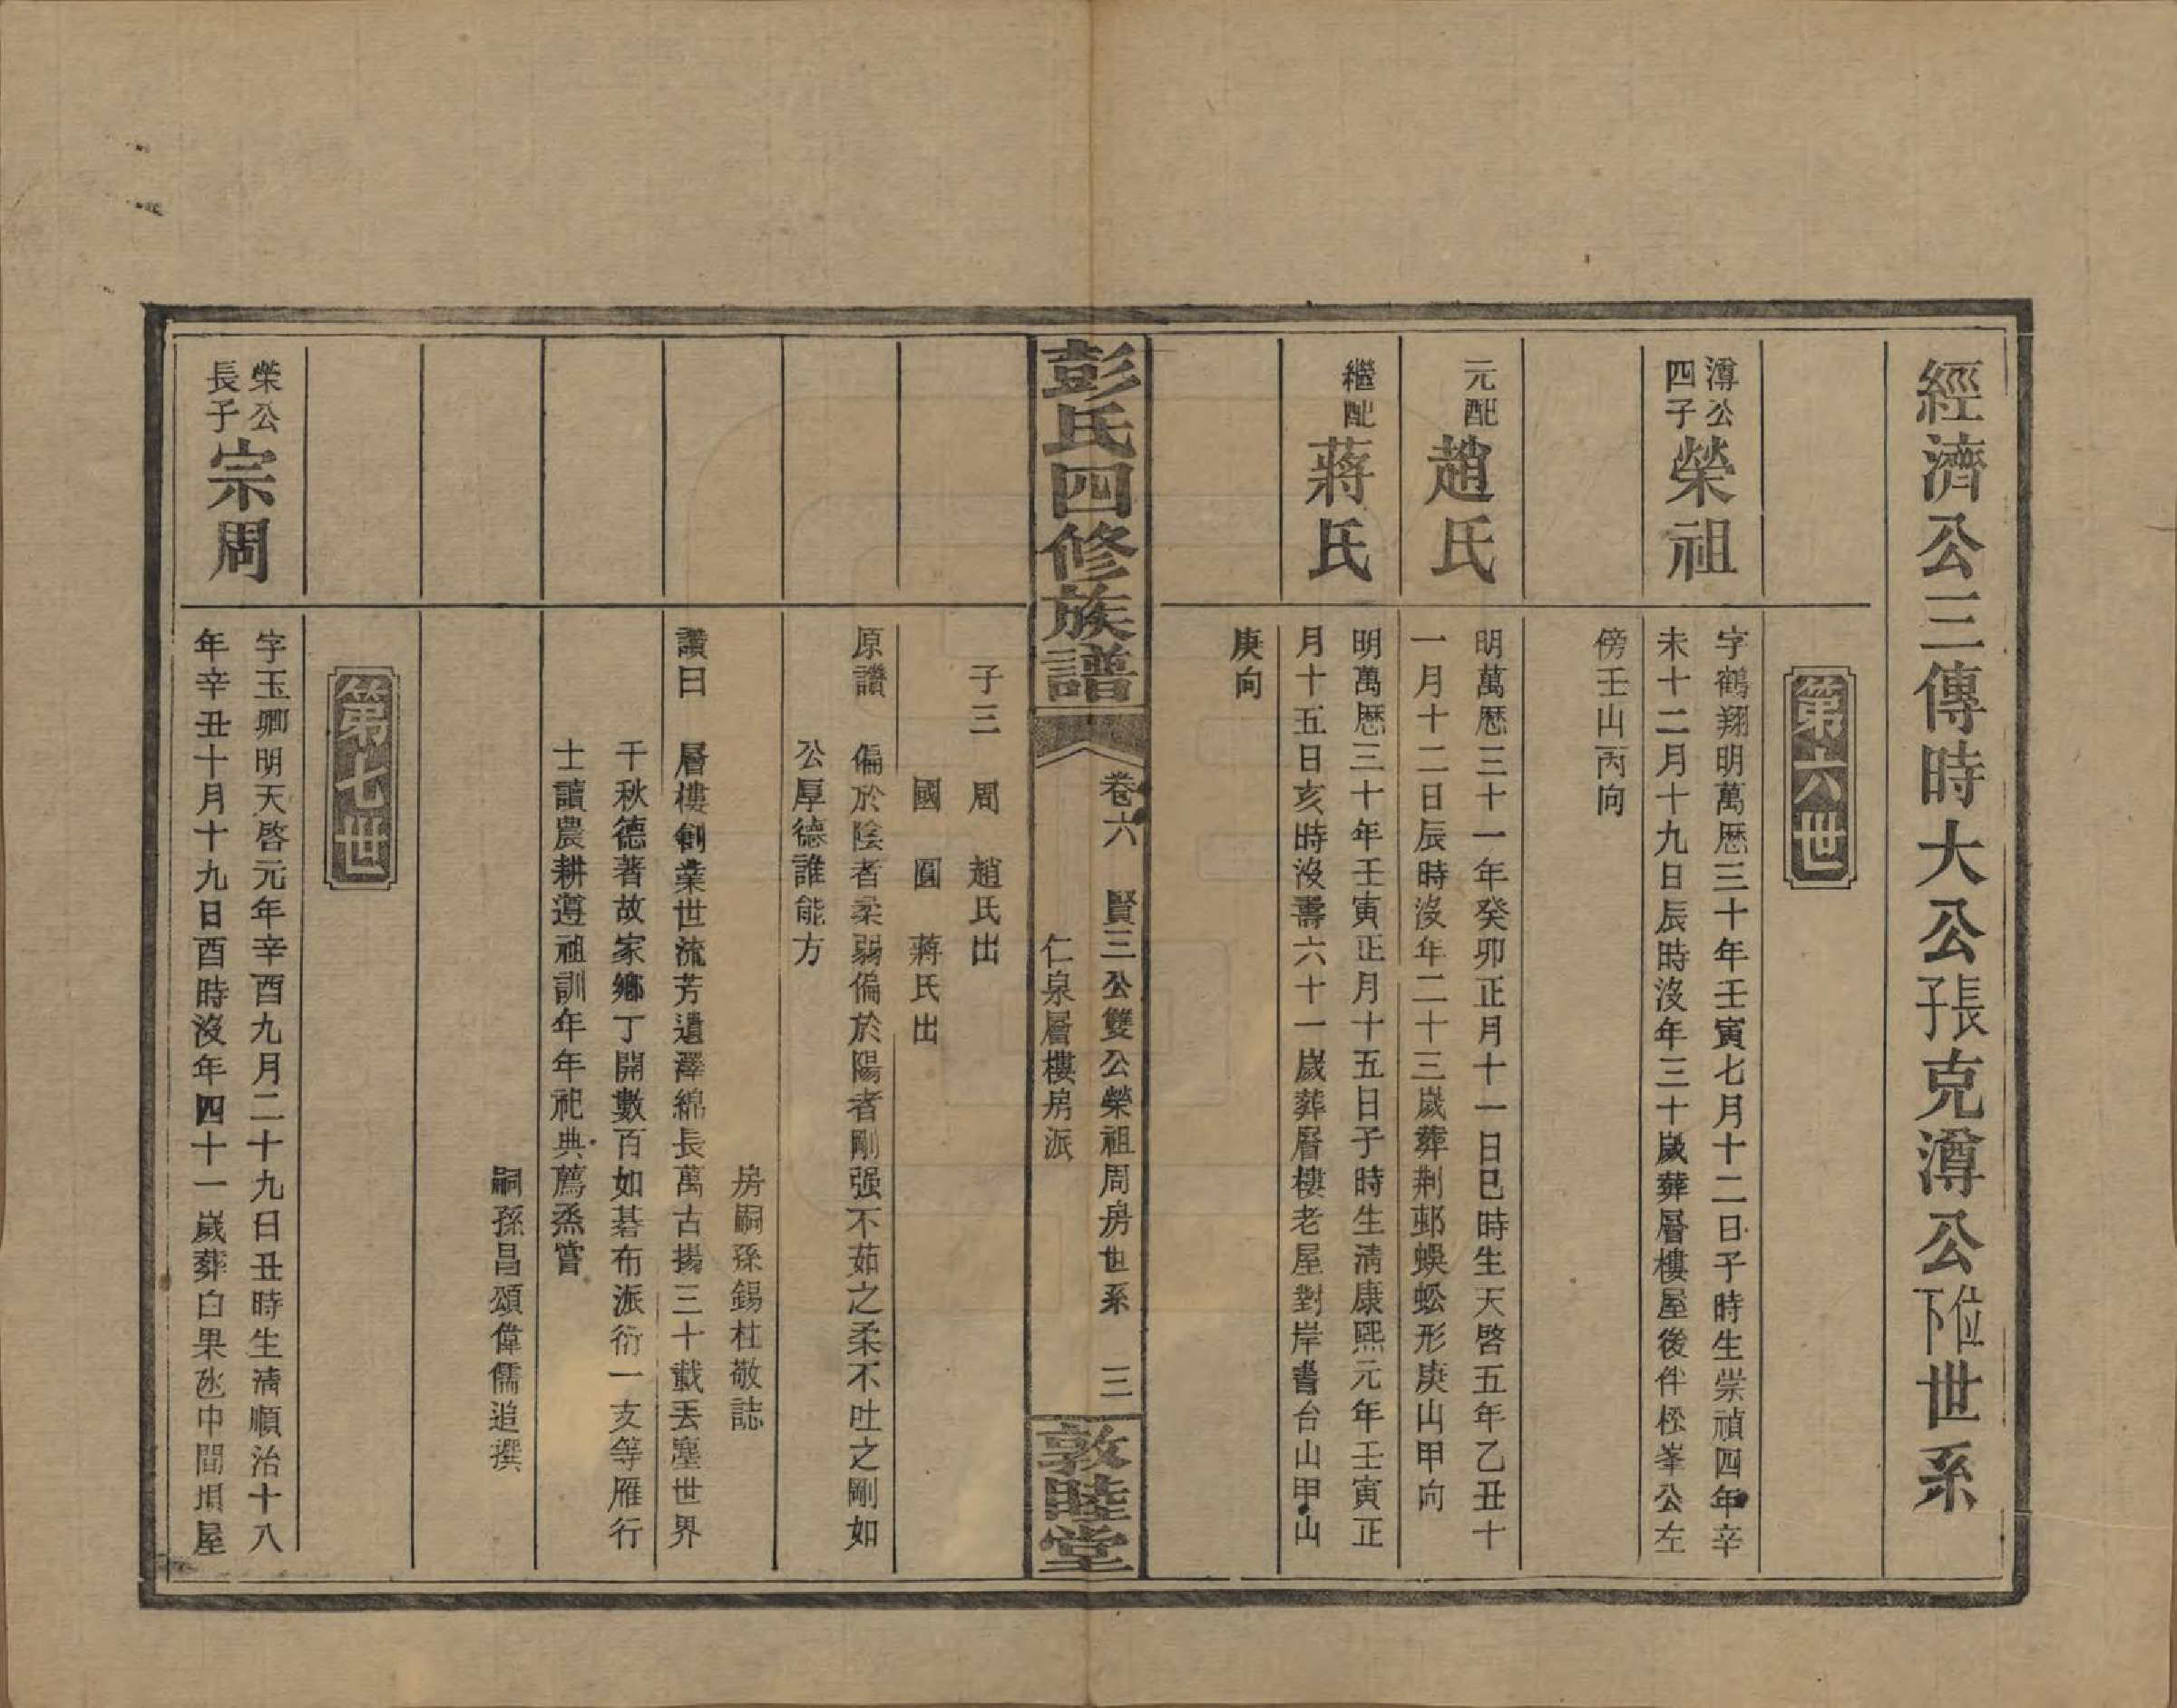 經濟公三傳時大公子長克澊公下位世系
第六世
澊公四子
榮祖
字鶴翔明萬厯三十年壬寅七月十二日子時生崇禎四年辛
未十二月十九日辰時沒年三十歲葬層樓屋後伴松峯公左
傍壬山丙向
元配
趙氏
明萬厯三十一年癸卯正月十一日巳時生天啓五年乙丑十
一月十二日辰時沒年二十三歲葬荆邨蜈蚣形庚山甲向
繼配
蔣氏
明萬厯三十年壬寅正月十五日子時生淸康熙元年壬寅正
月十五日亥時沒壽六十一歲葬層樓老屋對岸書台山甲山
庚向
彭氏四修族譜
卷六 賢三公雙公榮祖周房世系 三
仁泉層樓房派
敦睦堂
子三 周 趙氏出
國 圓 蔣氏出
原讚 偏於陰者柔弱偏於陽者剛强不茹之柔不吐之剛如
公厚德誰能方
房嗣孫錫杜敬誌
讚曰 層樓創業世流芳遺澤綿長萬古揚三十載丟塵世界
千秋德著故家鄉丁開數百如碁布派衍一支等雁行
士讀農耕遵祖訓年年祀典薦烝嘗
嗣孫昌頌偉儒追撰
第七世
榮公長子
宗周
字玉卿明天啓元年辛酉九月二十九日丑時生淸順治十八
年辛丑十月十九日酉時沒年四十一歲葬白果氹中間垻屋